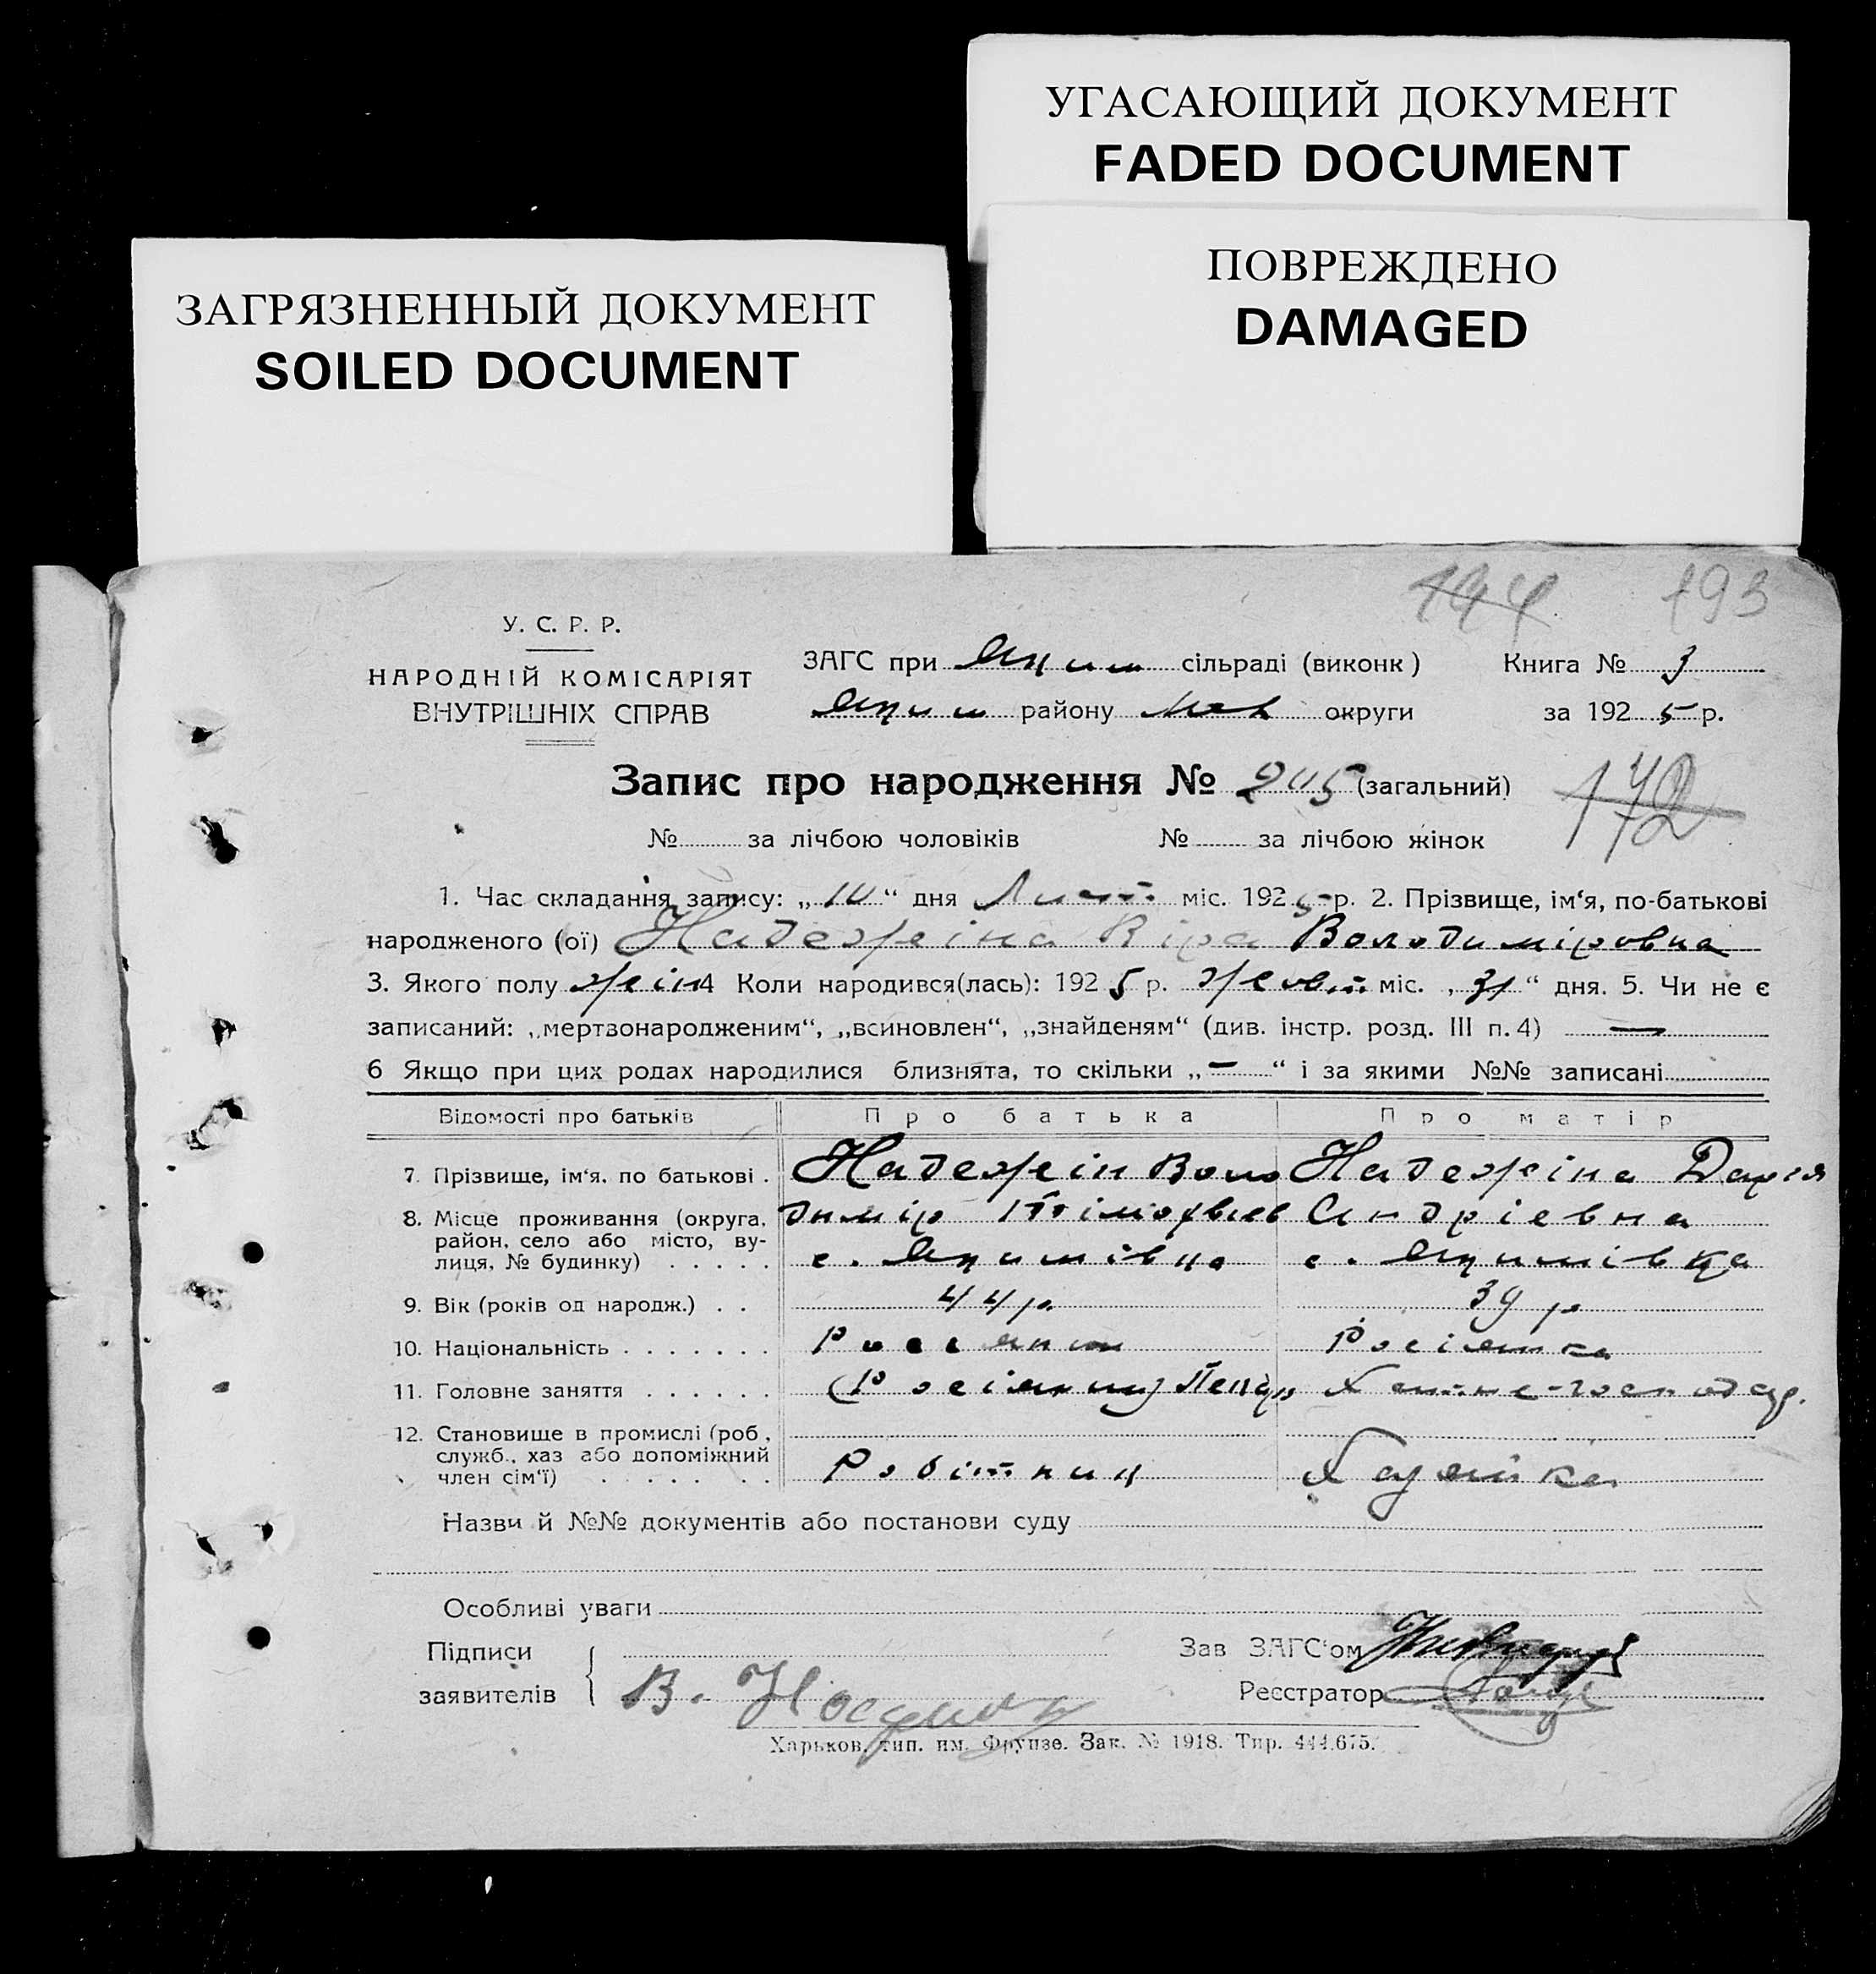 УГАСАЮЩИЙ ДОКУМЕНТ
FADED DOCUMENT
ПОВРЕЖДЕНО
DAMAGED
ЗАГРЯЗНЕННЫЙ ДОКУМЕНТ
SOILED DOCUMENT
194 193
У. С. Р. Р.
НАРОДНІЙ КОМІСАРІЯТ
ВНУТРІШНІХ СПРАВ
ЗАГС при Яким сільраді (виконк) Книга № 3
Яким району Мел округи за 1925 р.
Запис про народження № 205 (загальний)
172
№ за лічбою чоловіків № за лічбою жінок
1. Час складання запису: „10“ дня Лист міс. 1925 р. 2. Прізвище, ім‘я, по-батькові
народженого (ої) Надежіна Віра Володиміровна
3. Якого полу жін 4 Коли народився(лась): 1925 р. жовт міс. „31“ дня. 5. Чи не є
записаний: „мертвонародженим“, „всиновлен“, „знайденям“ (див. інстр. розд. III п. 4) —
6 Якщо при цих родах народилися близнята, то скільки „—“ і за якими №№ записані
Відомості про батьків Про батька Про матір
7. Прізвище, ім‘я, по батькові . Надежін Воло Надежіна Дарія
8. Місце проживання (округа, димір Тімофієв Андріевна
район, село або місто, ву-
лиця, № будинку) . . . . . с. Якимівка с. Якимівка
9. Вік (років од народж.) . . 44 р. 39 р
10. Національність . . . . . . . Росіянин Росіянка
11. Головне заняття . . . . . . (Росіянин) Хатне-господар.
12. Становище в промислі (роб,
служб., хаз або допоміжний Робітник Хазяйка
член сім‘ї) . . . . . .
Назви й №№ документів або постанови суду
Особливі уваги
Підписи Зав ЗАГС‘ом
заявителів В. Реєстратор
Харьков, тип. им. Фрунзе. Зак. № 1918. Тир. 444.675.